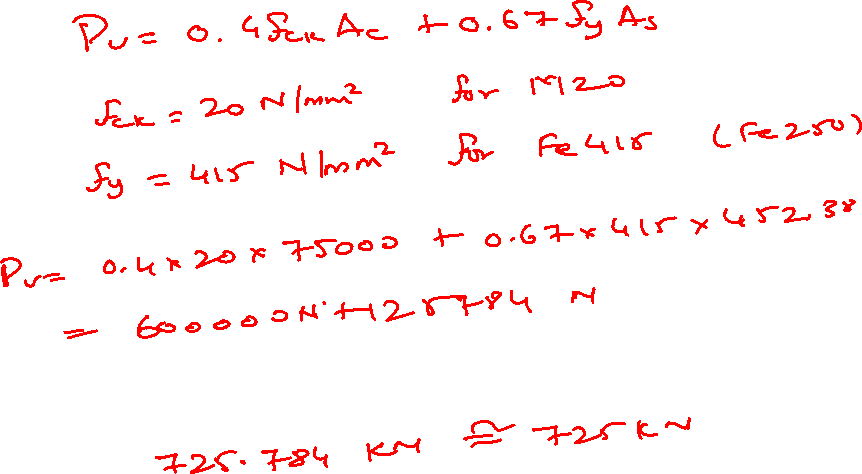 Pu = 0.4 fck Ac + 0.67 fy As
fck = 20 N/mm² for M20
fy = 415 N/mm² for Fe415 (Fe250)
Pu = 0.4 x 20 x 75000 + 0.67 x 415 x 452.38
= 600000N + 125784 N
725.784 KN ≅ 725 KN